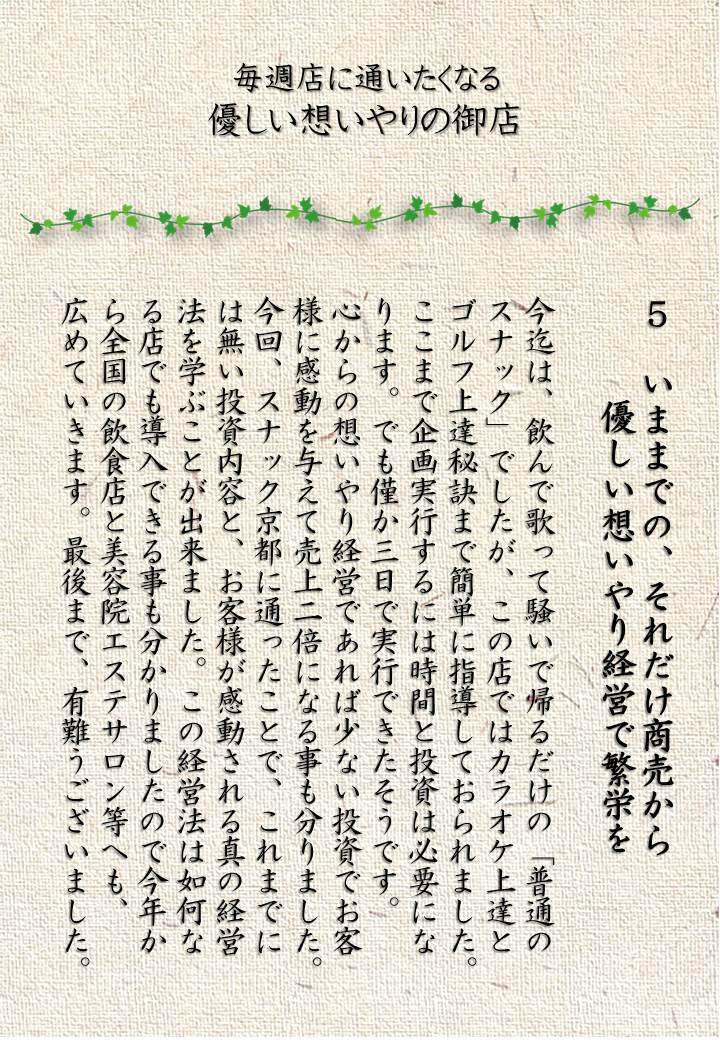 毎週店に通いたくなる
優しい想いやりの御店
5　いままでの、それだけ商売から
優しい想いやり経営で繁栄を
今迄は、飲んで歌って騒いで帰るだけの「普通の
スナック」でしたが、この店ではカラオケ上達と
ゴルフ上達秘訣まで簡単に指導しておられました。
ここまで企画実行するには時間と投資は必要にな
ります。でも僅か三日で実行できたそうです。
心からの想いやり経営であれば少ない投資でお客
様に感動を与えて売上二倍になる事も分りました。
今回、スナック京都に通ったことで、これまでに
は無い投資内容と、お客様が感動される真の経営
法を学ぶことが出来ました。この経営法は如何な
る店でも導入できる事も分かりましたので今年か
ら全国の飲食店と美容院エステサロン等へも、
広めていきます。最後まで、有難うございました。